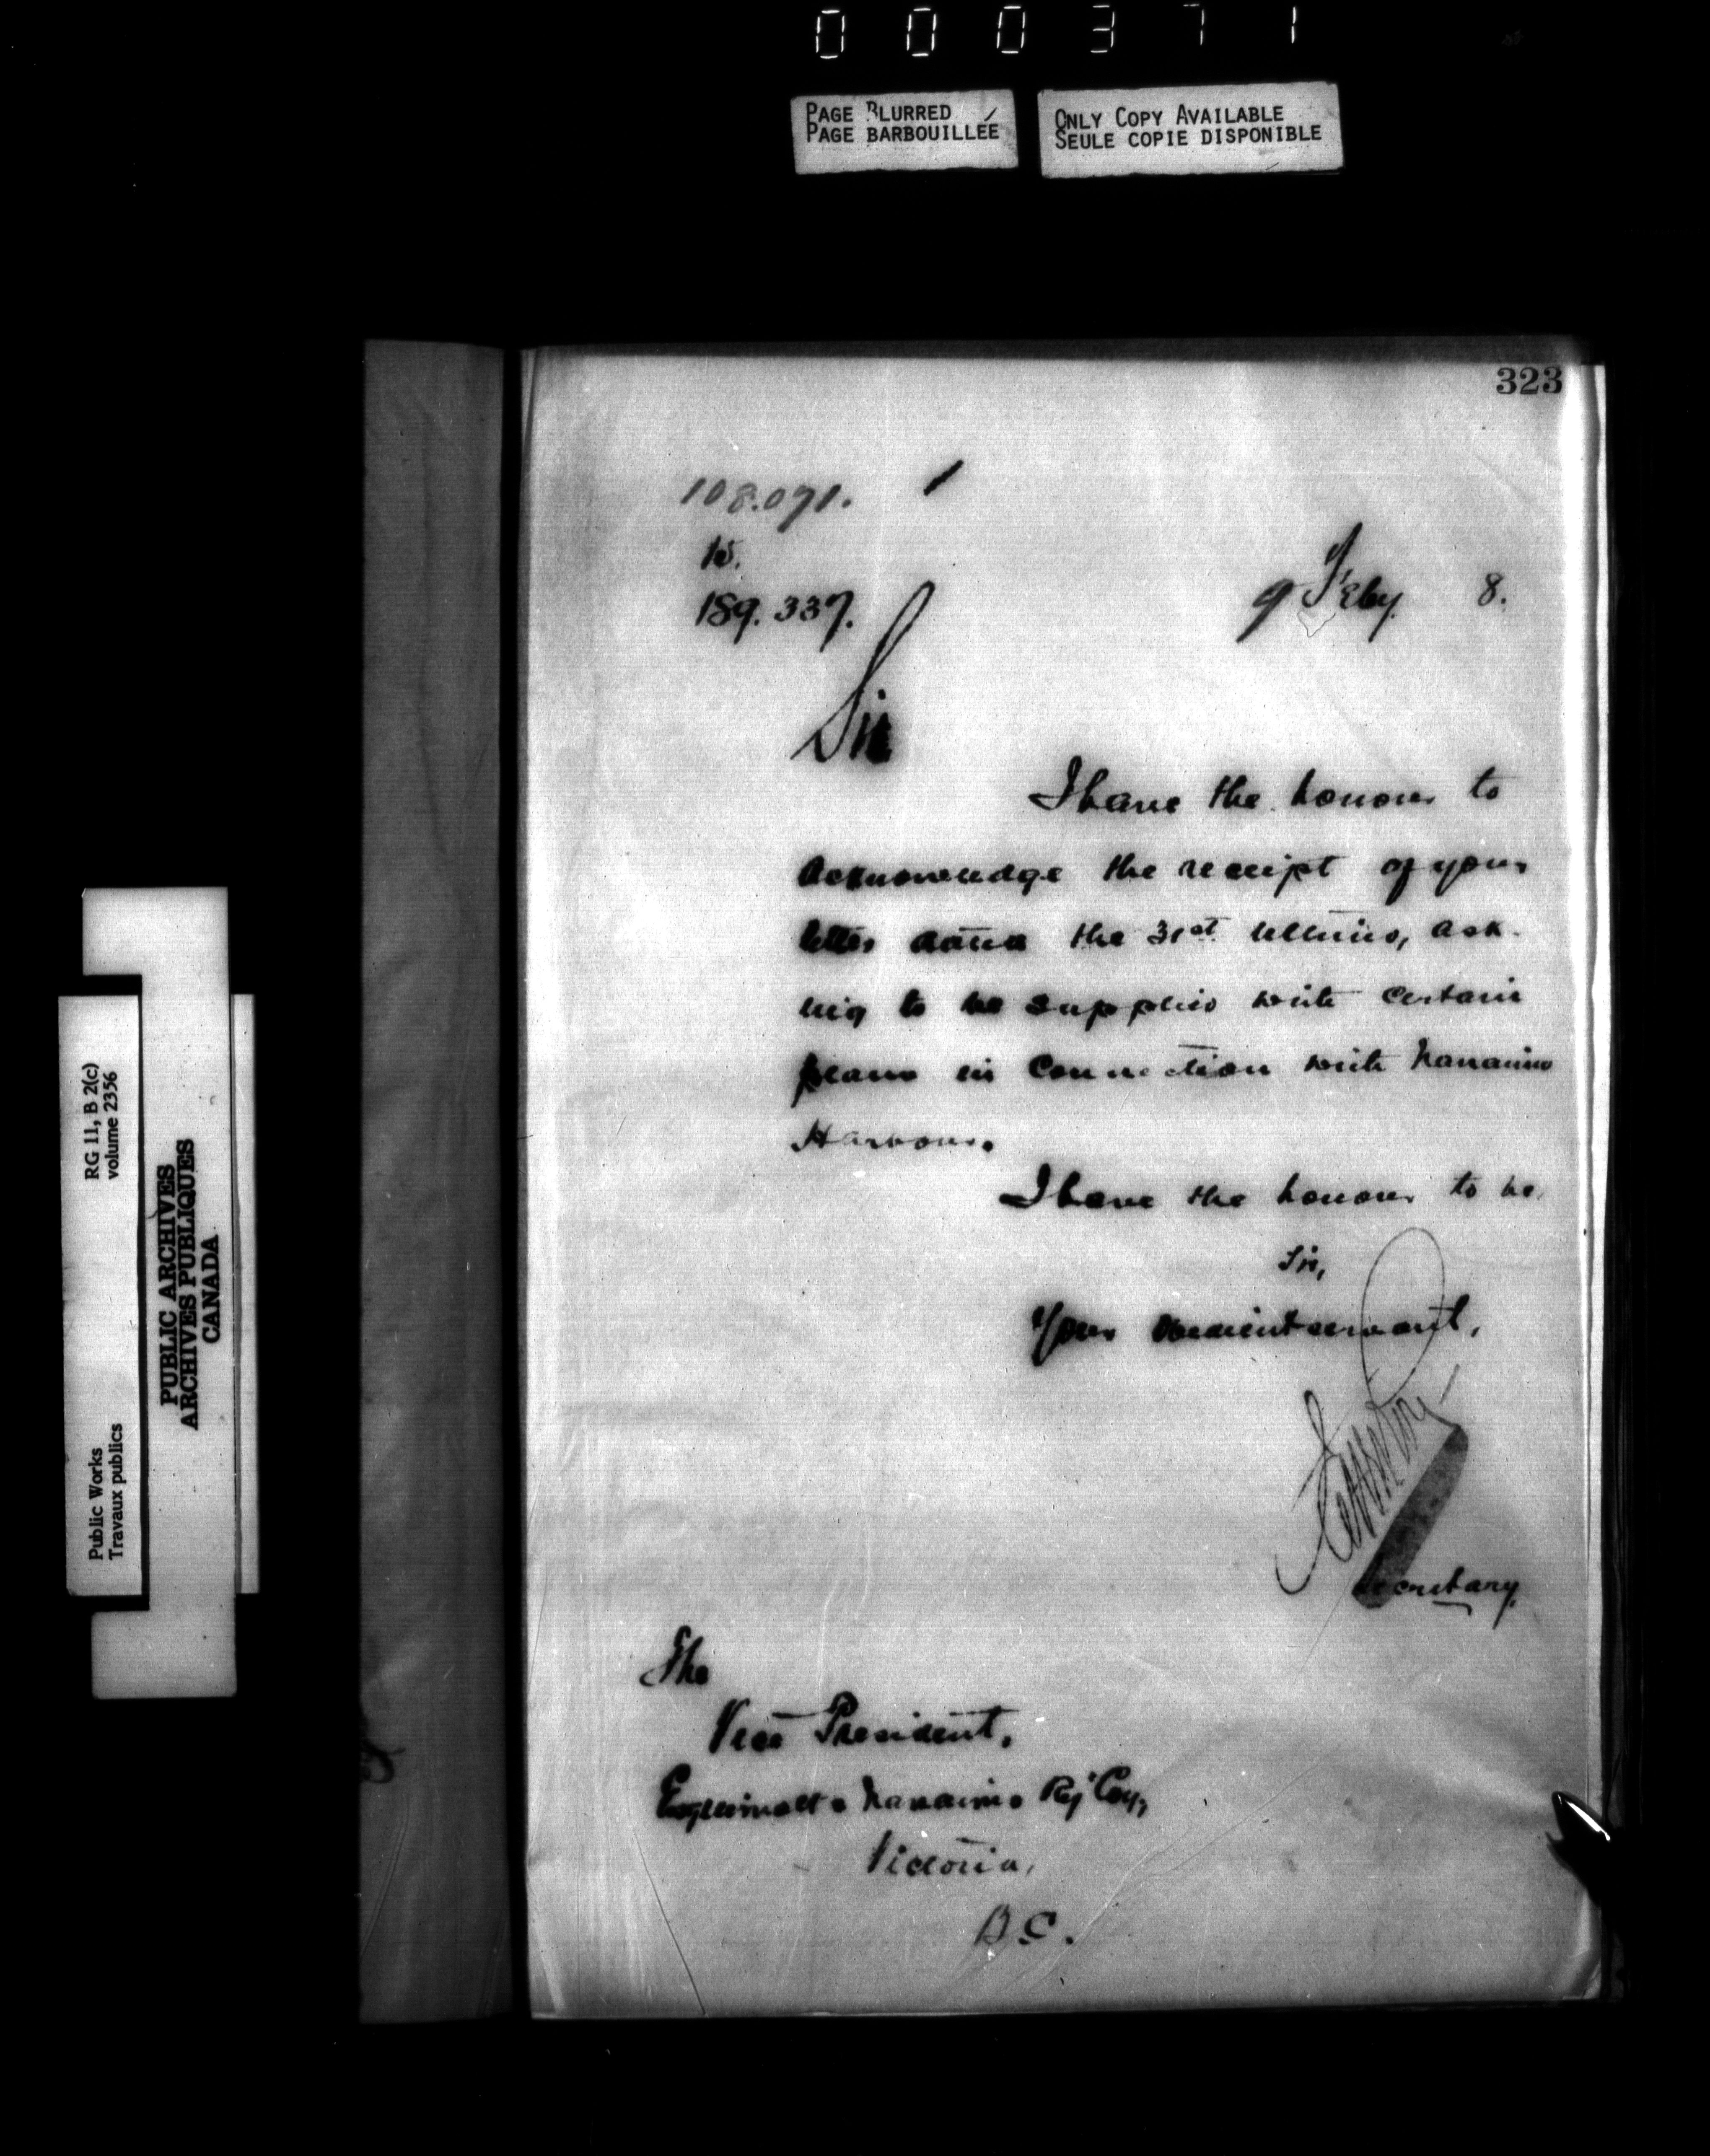 000371
PAGE BLURRED
PAGE BARBOUILLÉE
ONLY COPY AVAILABLE
SEULE COPIE DISPONIBLE
323
108.071.
15.
189.337.
9 Feby 8.
Sir
I have the honour to
acknowledge the receipt of your
letter dated the 31st ultimo, ask-
ing to be supplied with certain
plans in connection with Nanaimo
Harbour.
I have the honour to be,
Sir,
Your obedient servant,
Secretary.
The
Vice President,
Esquimalt & Nanaimo Ry Coy,
Victoria,
B C.
RG 11, B 2(c)
volume 2356
PUBLIC ARCHIVES
ARCHIVES PUBLIQUES
CANADA
Public Works
Travaux publics